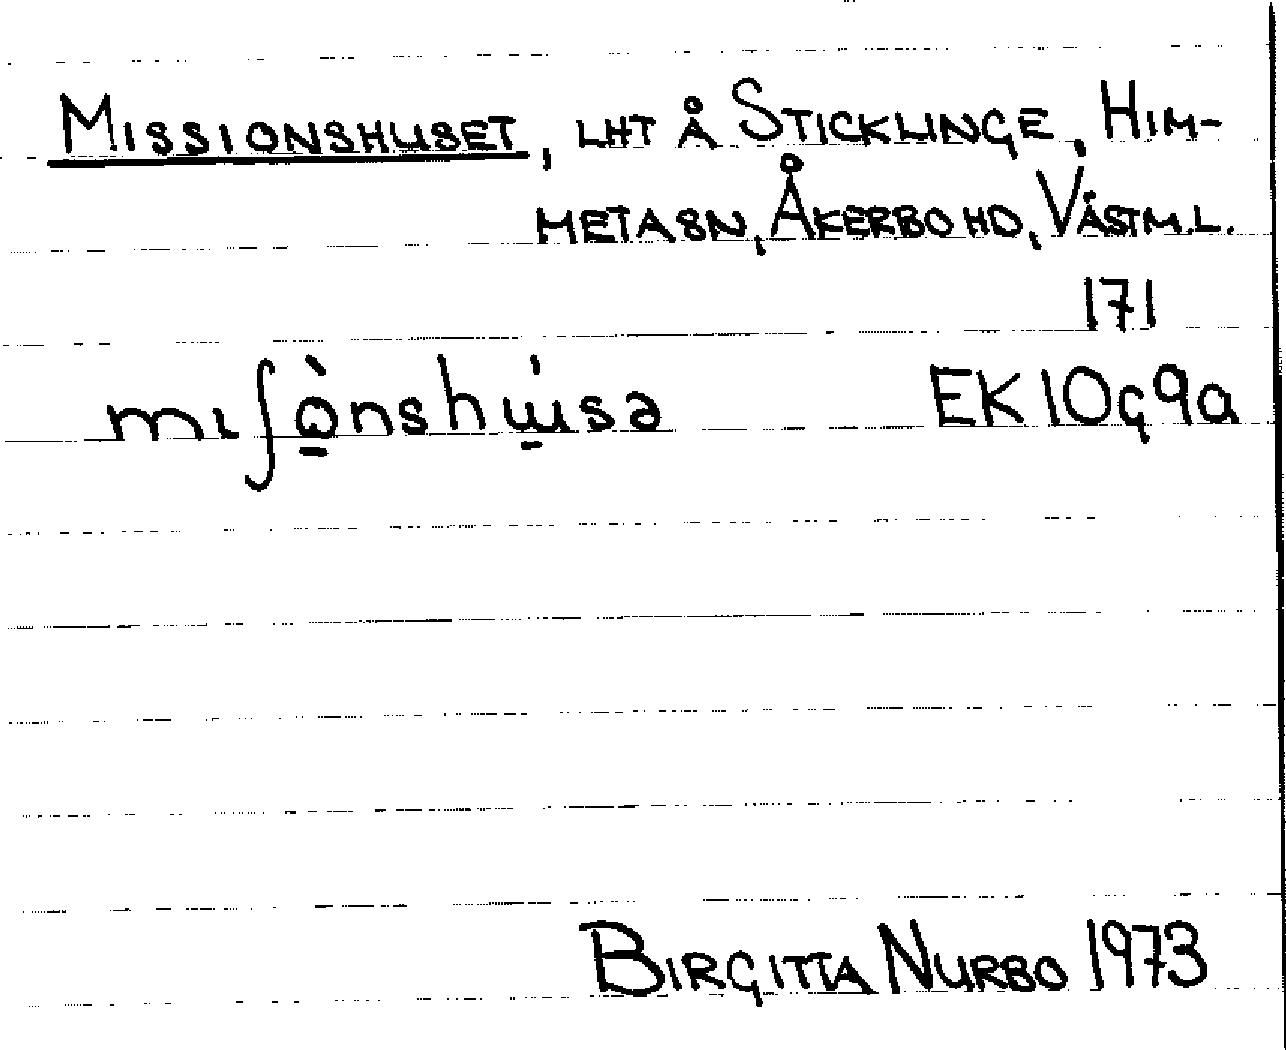 MISSIONSHUSET, LHT Å STICKLINGE, HIM-
METASN, ÅKERBO HD, VÄSTM.L.
171
mıʃò̱nshɯ̱́sə EK10g9a
BIRGITTA NURBO 1973